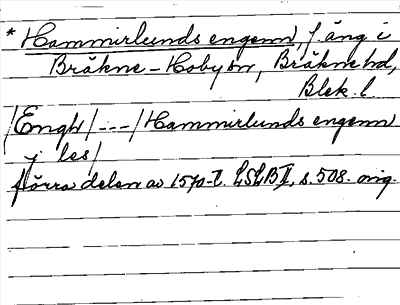 * Hammirlunds engenn, f. äng i
Bräkne-Hoby sn, Bräkne hd,
Blek. l.
/Engh/ --- / Hammirlunds engenn
j les/
förra delen av 1570-t. LSLB II, s. 508. orig.